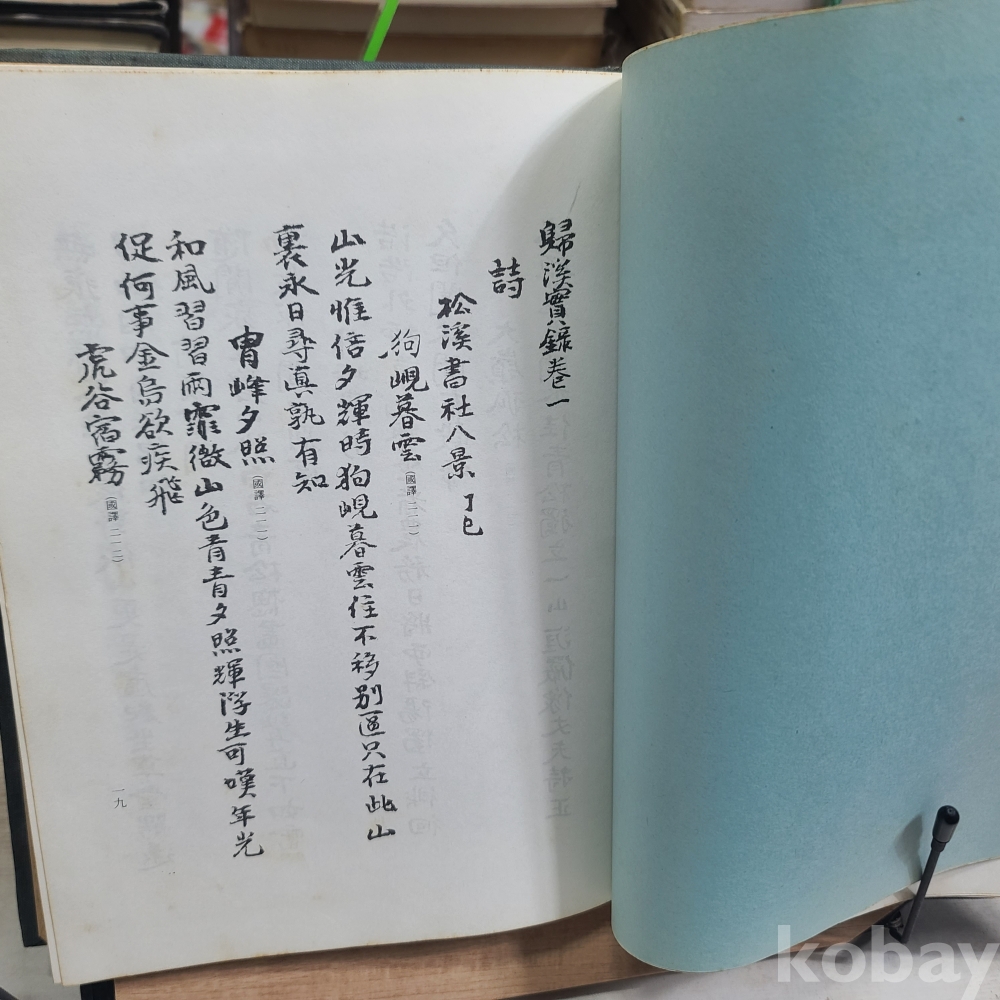 歸溪實錄卷一
詩
松溪書社八景 丁巳
狗峴暮雲 (國譯 二一一)
山光惟倍夕輝時狗峴暮雲住不移別區只在此山
裏永日尋眞孰有知
冑峰夕照 (國譯 二一一)
和風習習雨霏微山色靑靑夕照輝浮生可嘆年光
促何事金烏欲疾飛
虎谷宿霧 (國譯 二一二)
一九
kobay